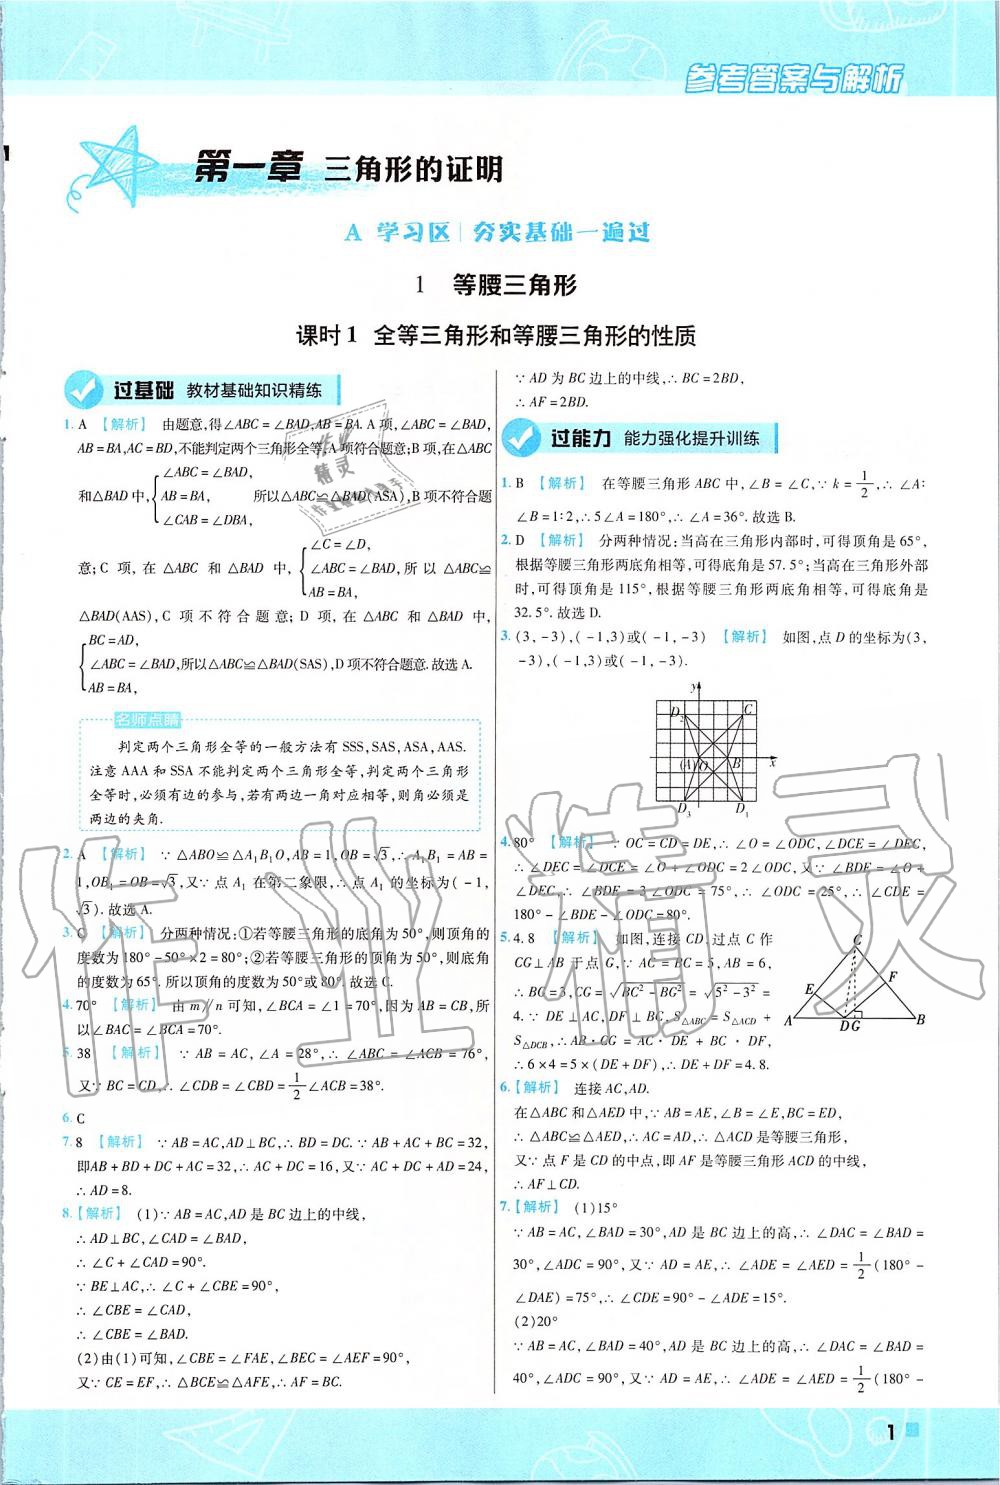 参考答案与解析
第一章 三角形的证明
A 学习区 | 夯实基础一遍过
1 等腰三角形
课时1 全等三角形和等腰三角形的性质
过基础 教材基础知识精练
1. A 【解析】 由题意,得∠ABC=∠BAD,AB=BA. A项,∠ABC=∠BAD,
AB=BA,AC=BD,不能判定两个三角形全等,A项符合题意;B项,在△ABC
和△BAD中,{∠ABC=∠BAD, AB=BA, ∠CAB=∠DBA, 所以△ABC≌△BAD(ASA),B项不符合题
意;C项,在△ABC和△BAD中,{∠C=∠D, ∠ABC=∠BAD, AB=BA, 所以△ABC≌
△BAD(AAS),C项不符合题意;D项,在△ABC和△BAD中,
{BC=AD, ∠ABC=∠BAD, AB=BA, 所以△ABC≌△BAD(SAS),D项不符合题意.故选A.
名师点睛
判定两个三角形全等的一般方法有SSS,SAS,ASA,AAS.
注意AAA和SSA不能判定两个三角形全等,判定两个三角形
全等时,必须有边的参与,若有两边一角对应相等,则角必须是
两边的夹角.
2. A 【解析】 ∵△ABO≌△A₁B₁O,AB=1,OB=√3,∴A₁B₁=AB=
1,OB₁=OB=√3,又∵点A₁在第二象限,∴点A₁的坐标为(-1,
√3).故选A.
3. C 【解析】 分两种情况:①若等腰三角形的底角为50°,则顶角的
度数为180°-50°×2=80°;②若等腰三角形的顶角为50°,则底角
的度数为65°.所以顶角的度数为50°或80°.故选C.
4. 70° 【解析】 由m∥n可知,∠BCA=∠1=70°,因为AB=CB,所
以∠BAC=∠BCA=70°.
5. 38 【解析】 ∵AB=AC,∠A=28°,∴∠ABC=∠ACB=76°,
又∵BC=CD,∴∠CDB=∠CBD=1/2∠ACB=38°.
6. C
7. 8 【解析】 ∵AB=AC,AD⊥BC,∴BD=DC.∵AB+AC+BC=32,
即AB+BD+DC+AC=32,∴AC+DC=16,又∵AC+DC+AD=24,
∴AD=8.
8. 【解析】 (1)∵AB=AC,AD是BC边上的中线,
∴AD⊥BC,∠CAD=∠BAD,
∴∠C+∠CAD=90°.
∵BE⊥AC,∴∠C+∠CBE=90°,
∴∠CBE=∠CAD,
∴∠CBE=∠BAD.
(2)由(1)可知,∠CBE=∠FAE,∠BEC=∠AEF=90°,
又∵CE=EF,∴△BCE≌△AFE,∴AF=BC.
∵AD为BC边上的中线,∴BC=2BD,
∴AF=2BD.
过能力 能力强化提升训练
1. B 【解析】 在等腰三角形ABC中,∠B=∠C,∵k=1/2,∴∠A:
∠B=1:2,∴5∠A=180°,∴∠A=36°.故选B.
2. D 【解析】 分两种情况:当高在三角形内部时,可得顶角是65°,
根据等腰三角形两底角相等,可得底角是57.5°;当高在三角形外部
时,可得顶角是115°,根据等腰三角形两底角相等,可得底角是
32.5°.故选D.
3. (3,-3),(-1,3)或(-1,-3) 【解析】 如图,点D的坐标为(3,
-3),(-1,3)或(-1,-3).
y
D₂ C
(A) O B x
D₃ D₁
4. 80° 【解析】 ∵OC=CD=DE,∴∠O=∠ODC,∠DCE=∠DEC,
∴∠DEC=∠DCE=∠O+∠ODC=2∠ODC,又∵∠BDE=∠O+
∠DEC,∴∠BDE=3∠ODC=75°,∴∠ODC=25°,∴∠CDE=
180°-∠BDE-∠ODC=80°.
5. 4.8 【解析】 如图,连接CD,过点C作
CG⊥AB于点G,∵AC=BC=5,AB=6,
∴BG=3,CG=√(BC²-BG²)=√(5²-3²)=
4.∵DE⊥AC,DF⊥BC,S△ABC=S△ACD+
S△DCB,∴AB·CG=AC·DE+BC·DF,
∴6×4=5×(DE+DF),∴DE+DF=4.8.
C
F
E
A D G B
6. 【解析】 连接AC,AD.
在△ABC和△AED中,∵AB=AE,∠B=∠E,BC=ED,
∴△ABC≌△AED,∴AC=AD,∴△ACD是等腰三角形,
又∵点F是CD的中点,即AF是等腰三角形ACD的中线,
∴AF⊥CD.
7. 【解析】 (1)15°
∵AB=AC,∠BAD=30°,AD是BC边上的高,∴∠DAC=∠BAD=
30°,∠ADC=90°,又∵AD=AE,∴∠ADE=∠AED=1/2(180°-
∠DAE)=75°,∴∠CDE=90°-∠ADE=15°.
(2)20°
∵AB=AC,∠BAD=40°,AD是BC边上的高,∴∠DAC=∠BAD=
40°,∠ADC=90°,又∵AD=AE,∴∠ADE=∠AED=1/2(180°-
1
作业精灵